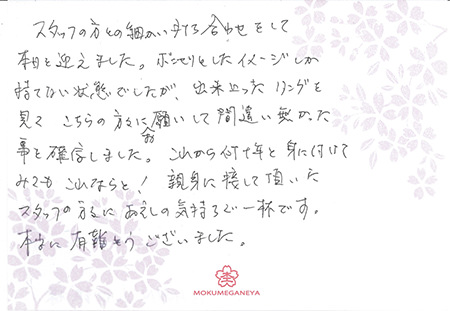 スタッフの方との細かい打ち合わせをして
本日を迎えました。ボンヤリとしたイメージしか
持てない状態でしたが、出来上ったリングを
見て こちらの方々にお願いして間違い無かった
事を確信しました。これから何十年と身に付けて
みても これならと! 親身に接して頂いた
スタッフの方々に お礼の気持ちで一杯です。
本当に有難とうございました。
MOKUMEGANEYA